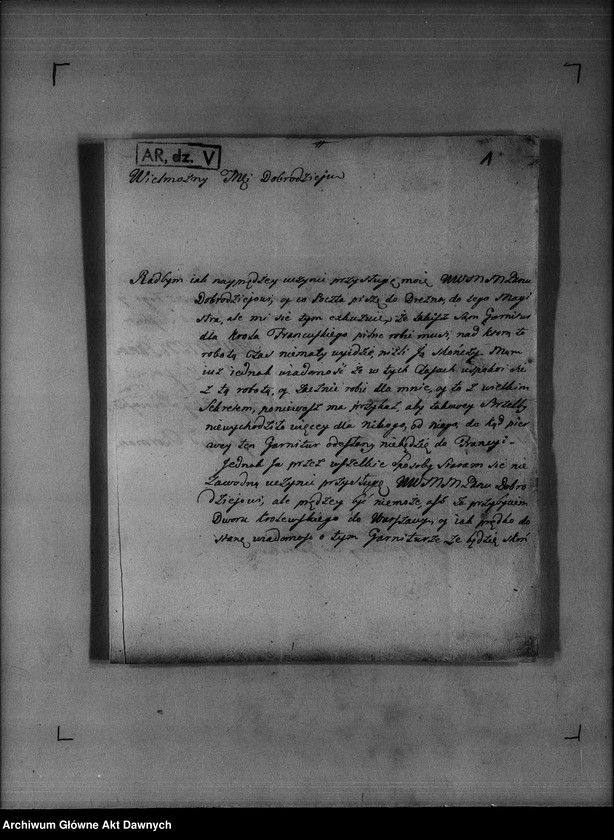 AR, dz. V
1
Wielmożny Mći Dobrodzieju
Radbym iak nayprędzey uczynić przysługę moię WWMM Panu
Dobrodziejowi, y co Poczta piszę do Drezna, do tego Magi
stra, ale mi się tym exkuzuie, że takiż Sam Garnitur
dla Krola Francuskiego pilno robić musi, nad ktorą to
robotą Czas niemały wyidzie, niżli Ją skończy. Mam
iuż iednak wiadomość że w tych Czasach uspokoi się
z tą robotą, y zacznie robić dla mnie, y to z wielkim
Sekretem, ponieważ ma przykaz, aby takowey Strzelby
niewychodziło więcey dla nikogo, od niego, do kąd pier
wey ten Garnitur odesłany niebędzie do Francyi -
Jednak Ja przez wszelkie sposoby Staram się nie
zawodną uczynić przysługę WWMM Panu Dobro
dziejowi, ale prędzey być niemoże, aż za przybyciem
Dworu Krolewskiego do Warszawy, y iak prędko do
stanę wiadomość o tym Garniturze że będzie skoń
Archiwum Główne Akt Dawnych